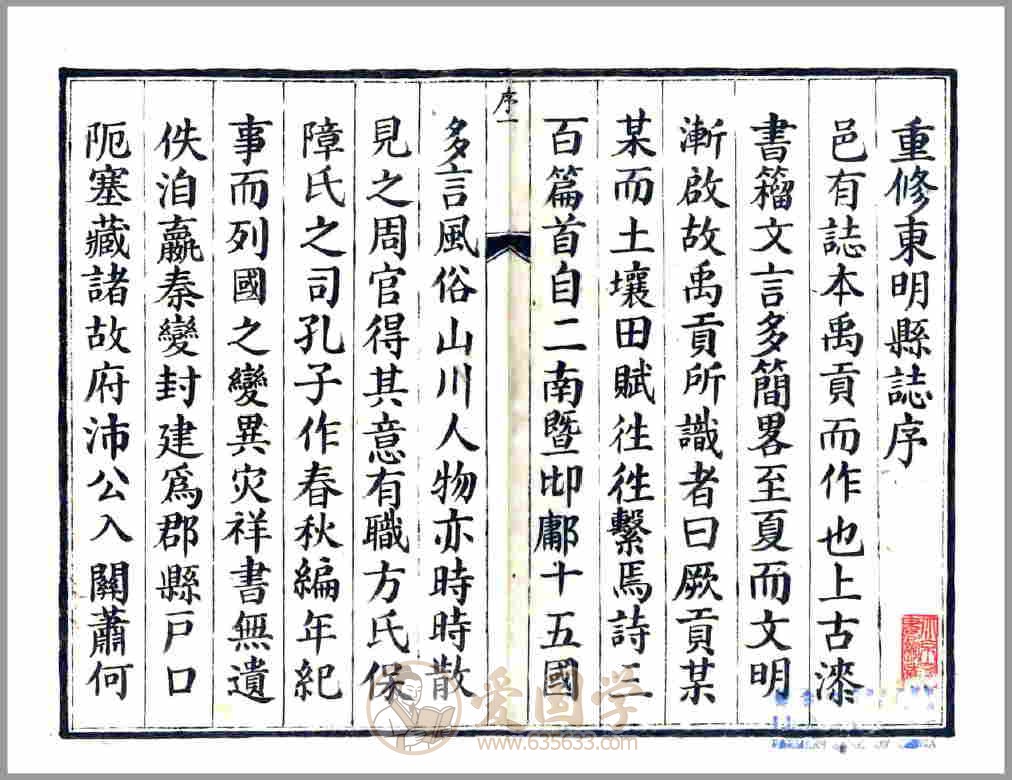 重修東明縣誌序
邑有誌本禹貢而作也上古漆
書籀文言多簡畧至夏而文明
漸啟故禹貢所識者曰厥貢某
某而土壤田賦徃徃繫焉詩三
百篇首自二南暨邶鄘十五國
序一
多言風俗山川人物亦時時散
見之周官得其意有職方氏保
障氏之司孔子作春秋編年紀
事而列國之變異灾祥書無遺
佚洎嬴秦變封建爲郡縣戸口
阨塞藏諸故府沛公入關蕭何
爱国学
www.635633.com